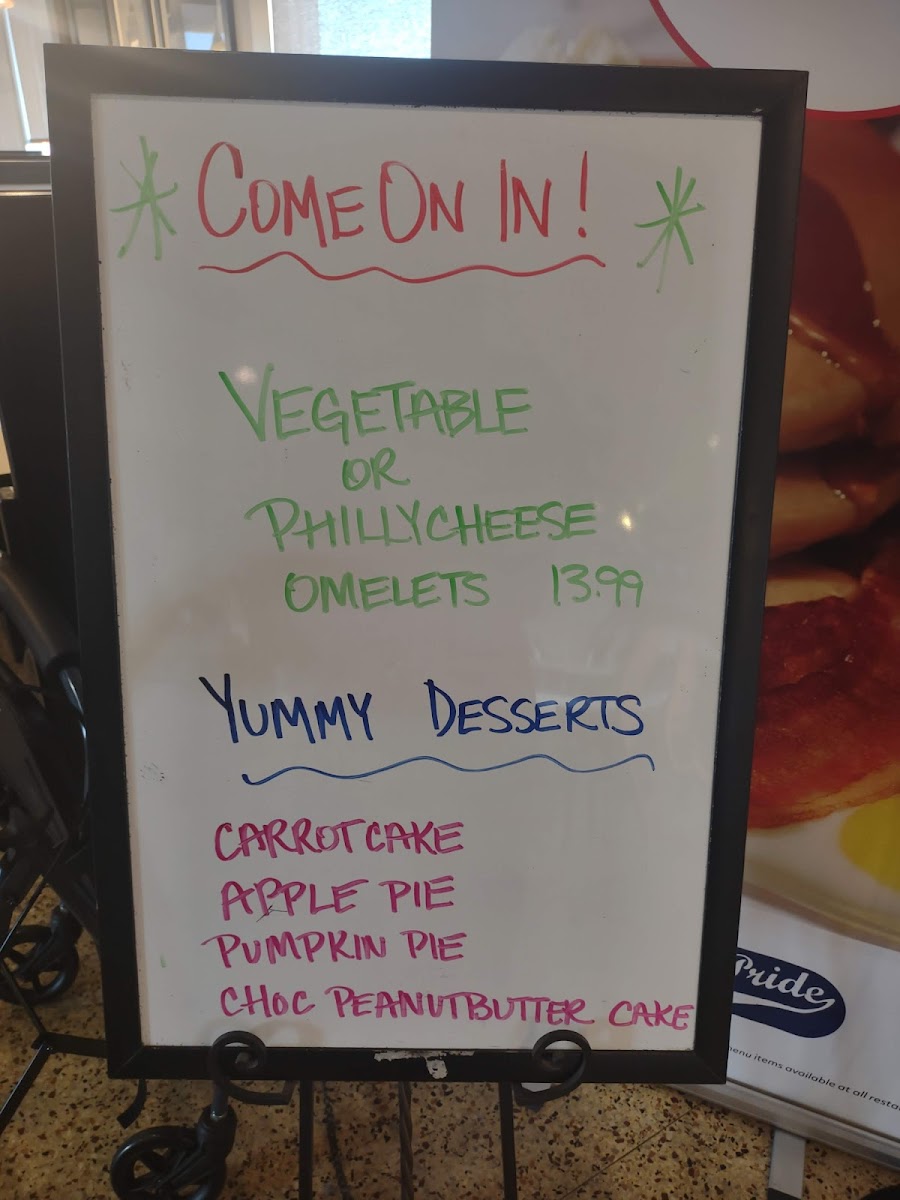 COME ON IN!
VEGETABLE
OR
PHILLYCHEESE
OMELETS 13.99
YUMMY DESSERTS
CARROT CAKE
APPLE PIE
PUMPKIN PIE
CHOC PEANUTBUTTER CAKE
Pride
menu items available at all